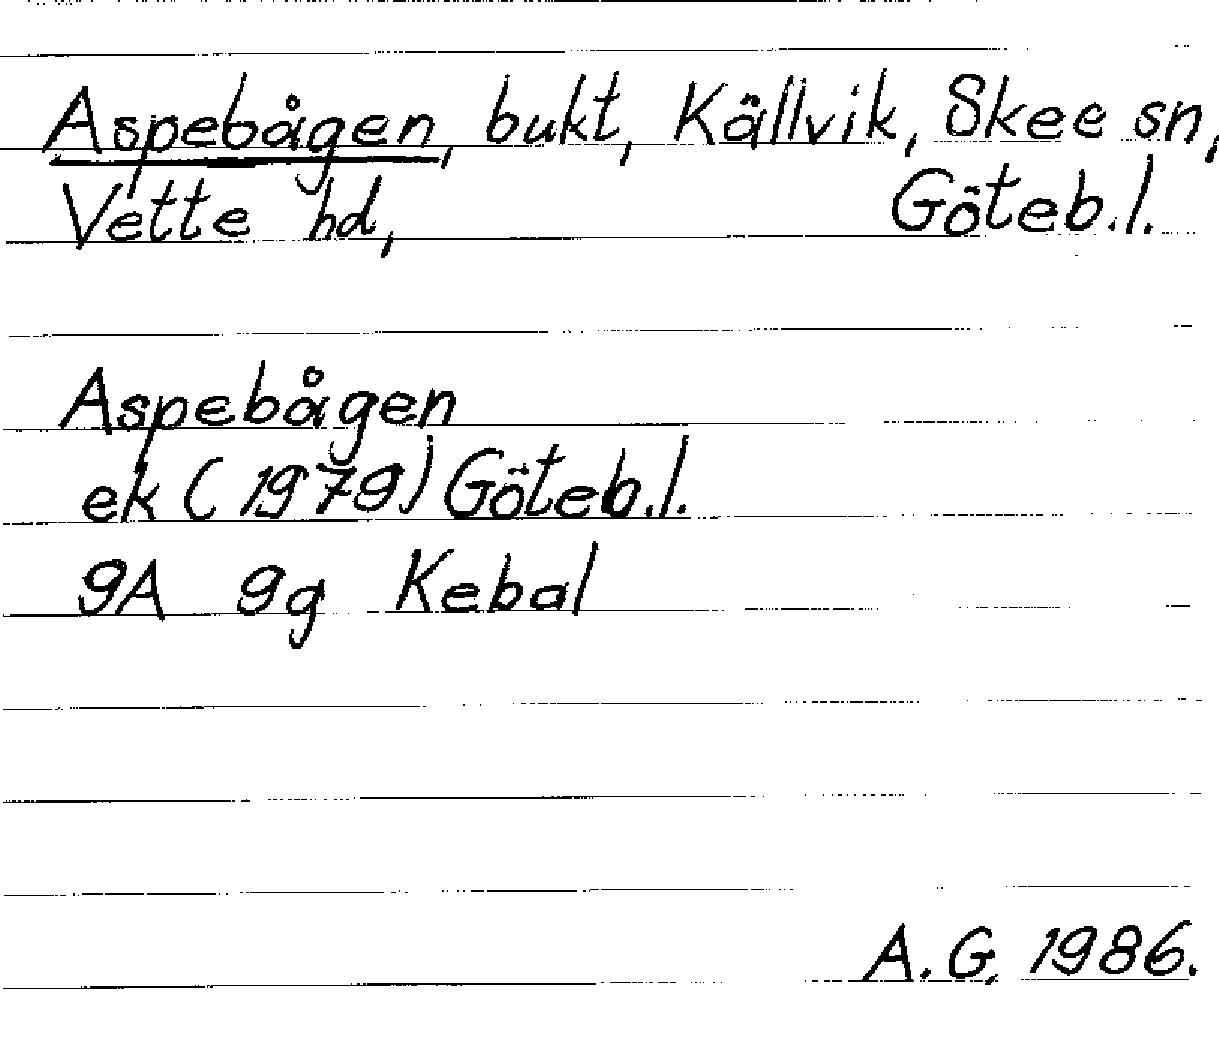 Aspebågen, bukt, Källvik, Skee sn,
Vette hd, Göteb.l.
Aspebågen
ek (1979) Göteb.l.
9A 9g Kebal
A.G. 1986.